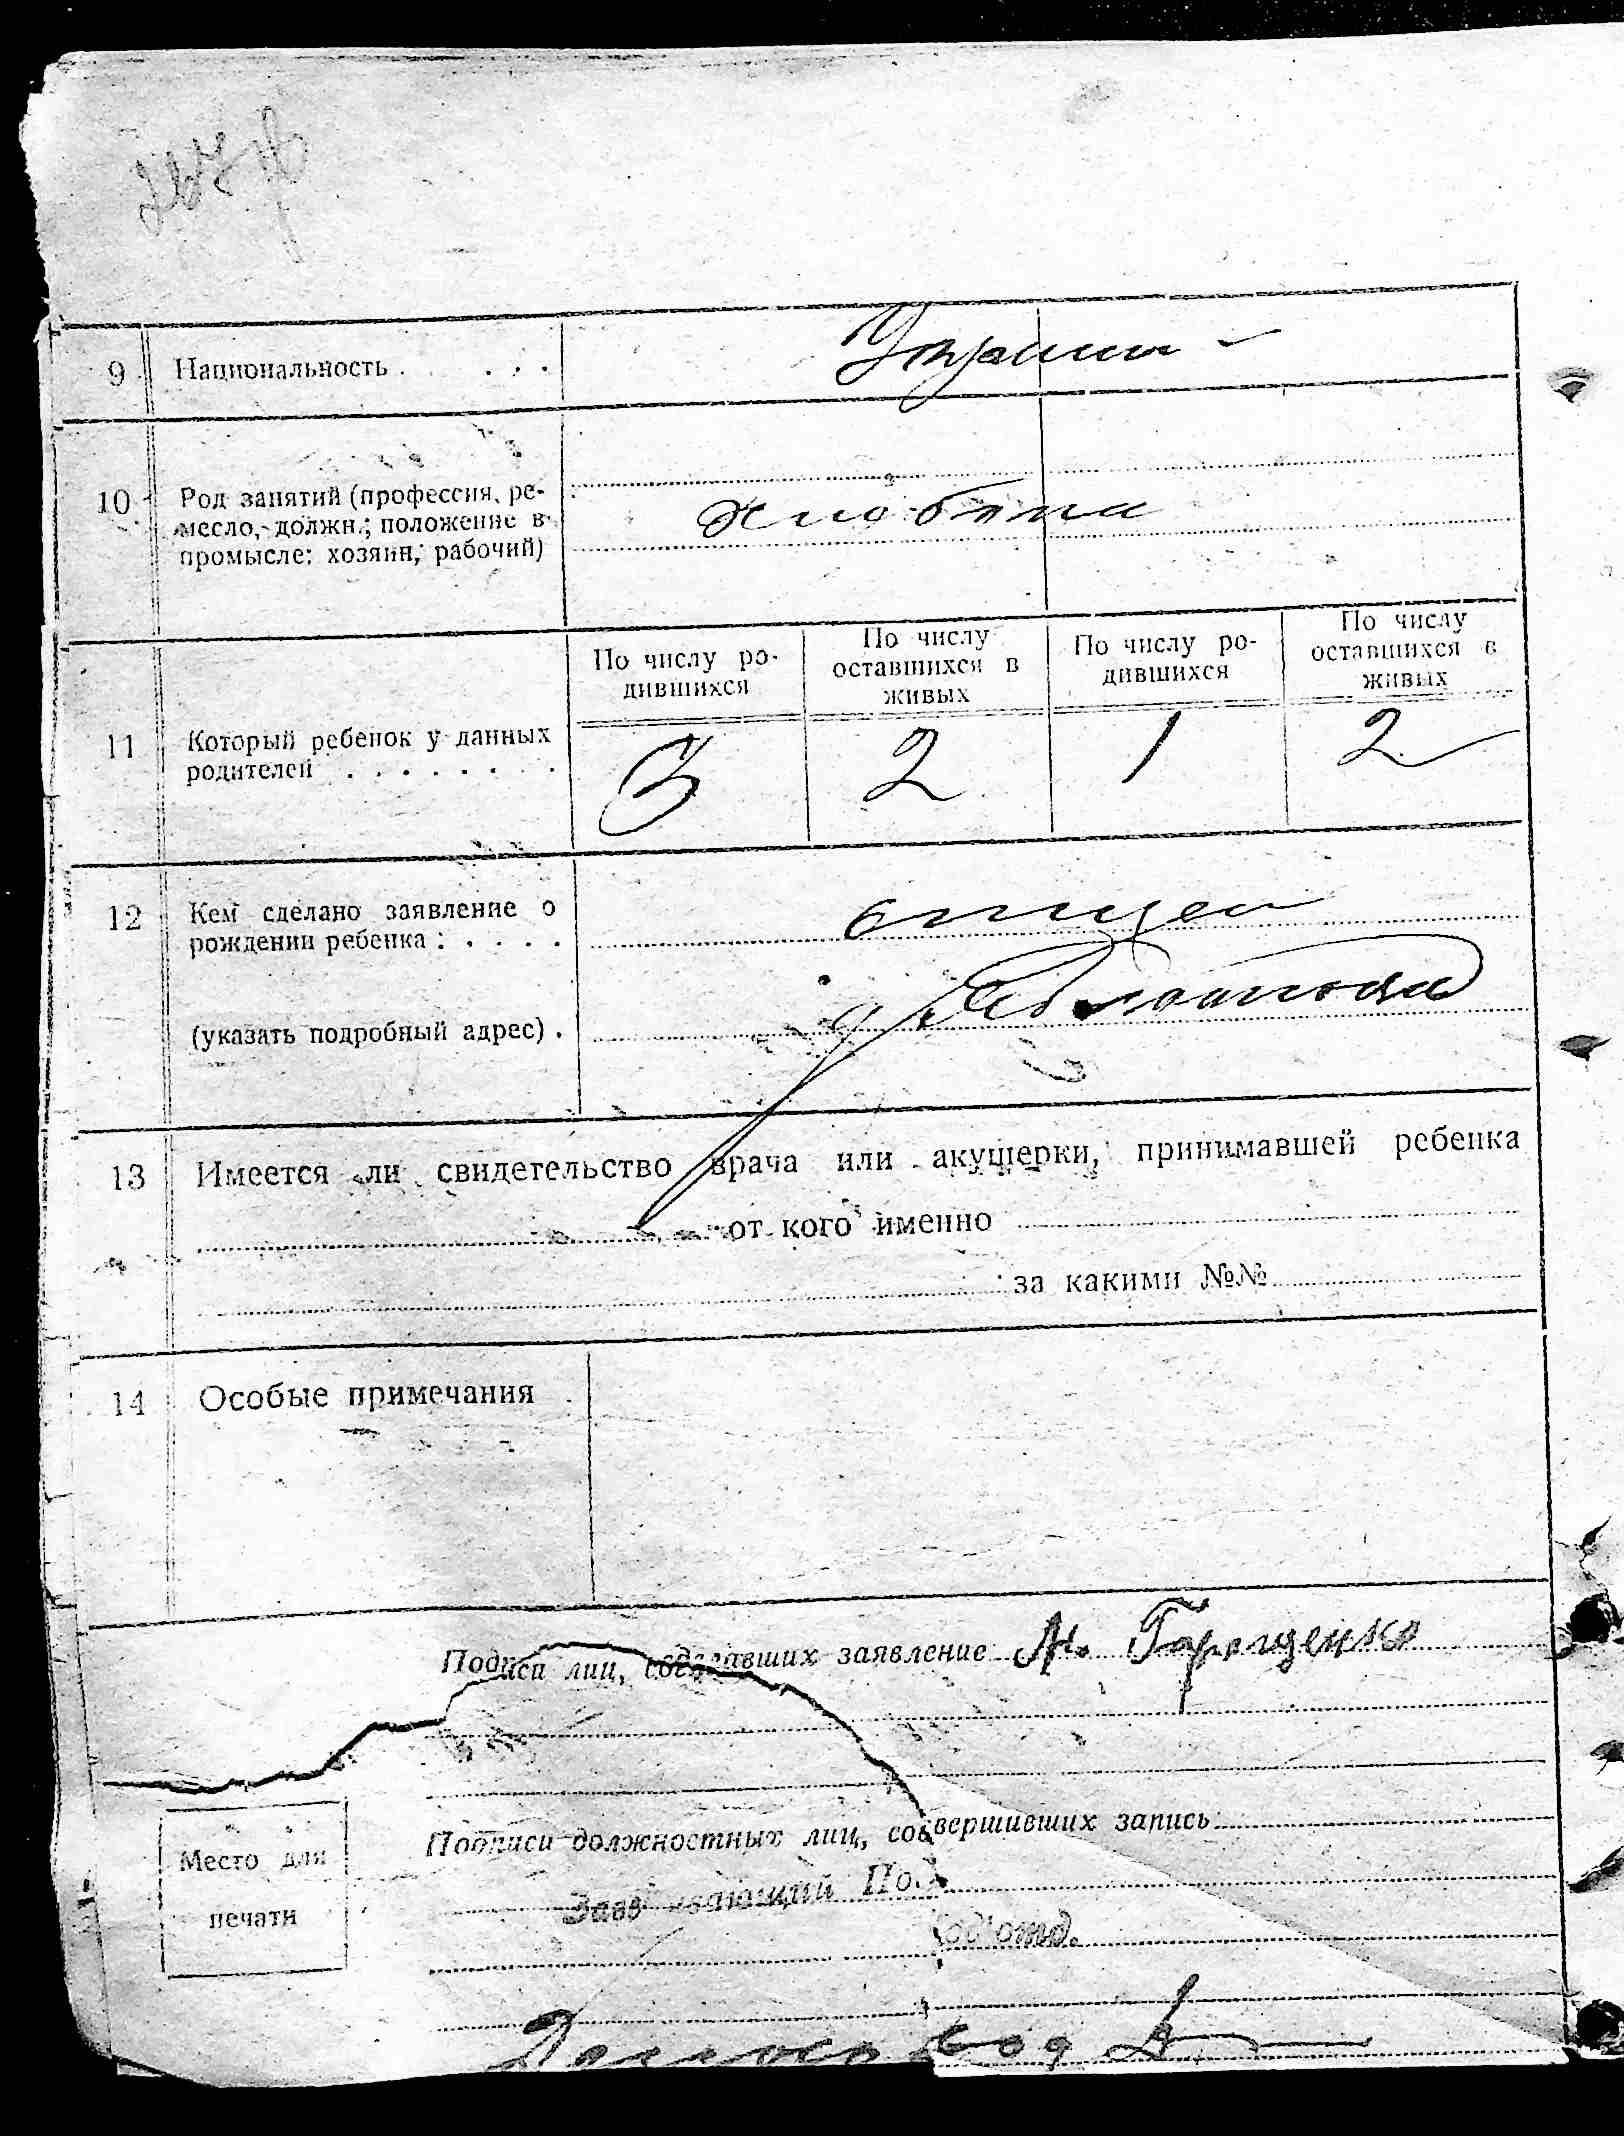 9 Национальность . . . .
10 Род занятий (профессия, ре-
месло, должн.; положение в
промысле: хозяин, рабочий)
По числу ро-
дившихся
По числу
оставшихся в
живых
По числу ро-
дившихся
По числу
оставшихся в
живых
11 Который ребенок у данных
родителей . . . . . . . .
3 2 1 2
12 Кем сделано заявление о
рождении ребенка : . . . .
отцем
(указать подробный адрес) .
13 Имеется ли свидетельство врача или акушерки, принимавшей ребенка
от кого именно
за какими №№
14 Особые примечания
Подписи лиц, сделавших заявление
Подписи должностных лиц, совершивших запись
Место для
печати
Заведывающий По